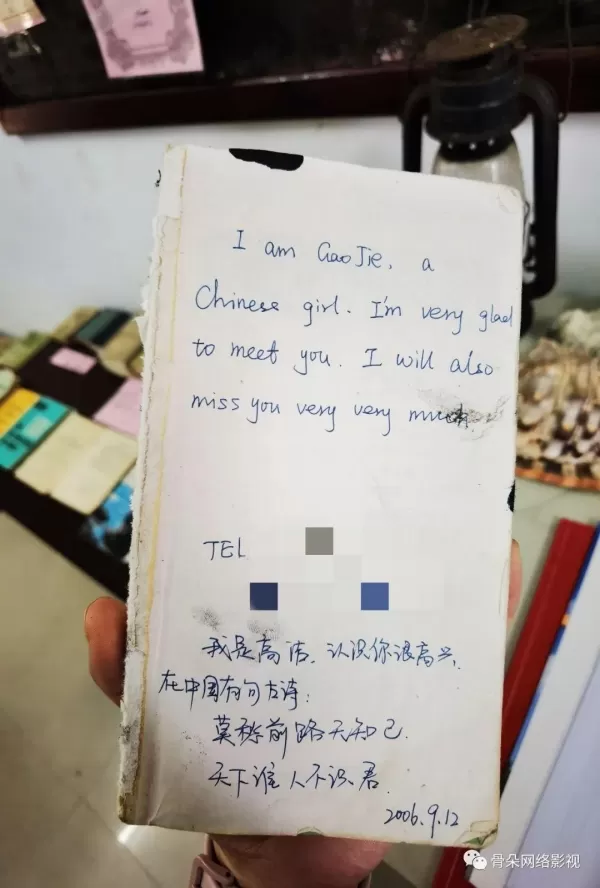 I am Gao Jie, a
Chinese girl. I'm very glad
to meet you. I will also
miss you very very much.
TEL
我是高洁，认识你很高兴，
在中国有句古诗：
莫愁前路无知己
天下谁人不识君
2006.9.12
骨朵网络影视